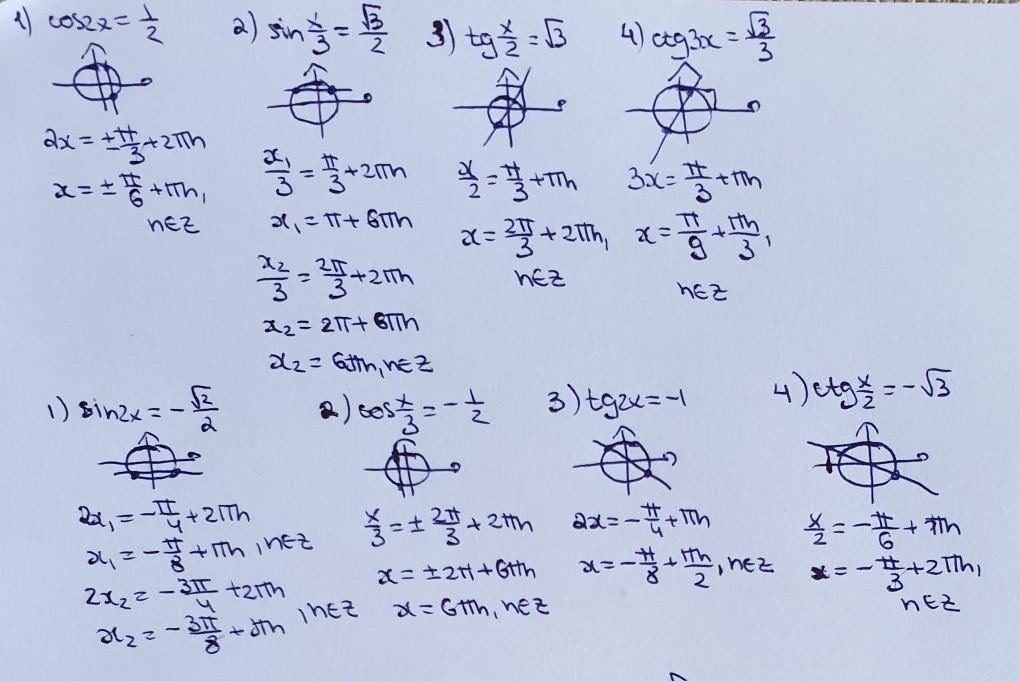 1) cos2x = 1/2
2x = ±π/3 + 2πn
x = ±π/6 + πn,
n∈Z
2) sin x/3 = √3/2
x₁/3 = π/3 + 2πn
x₁ = π + 6πn
x₂/3 = 2π/3 + 2πn
x₂ = 2π + 6πn
x₂ = 6πn, n∈Z
3) tg x/2 = √3
x/2 = π/3 + πn
x = 2π/3 + 2πn,
n∈Z
4) ctg3x = √3/3
3x = π/3 + πn
x = π/9 + πn/3,
n∈Z
1) sin2x = -√2/2
2x₁ = -π/4 + 2πn
x₁ = -π/8 + πn, n∈Z
2x₂ = -3π/4 + 2πn
x₂ = -3π/8 + πn, n∈Z
2) cos x/3 = -1/2
x/3 = ± 2π/3 + 2πn
x = ±2π + 6πn
x = 6πn, n∈Z
3) tg2x = -1
2x = -π/4 + πn
x = -π/8 + πn/2, n∈Z
4) ctg x/2 = -√3
x/2 = -π/6 + πn
x = -π/3 + 2πn,
n∈Z